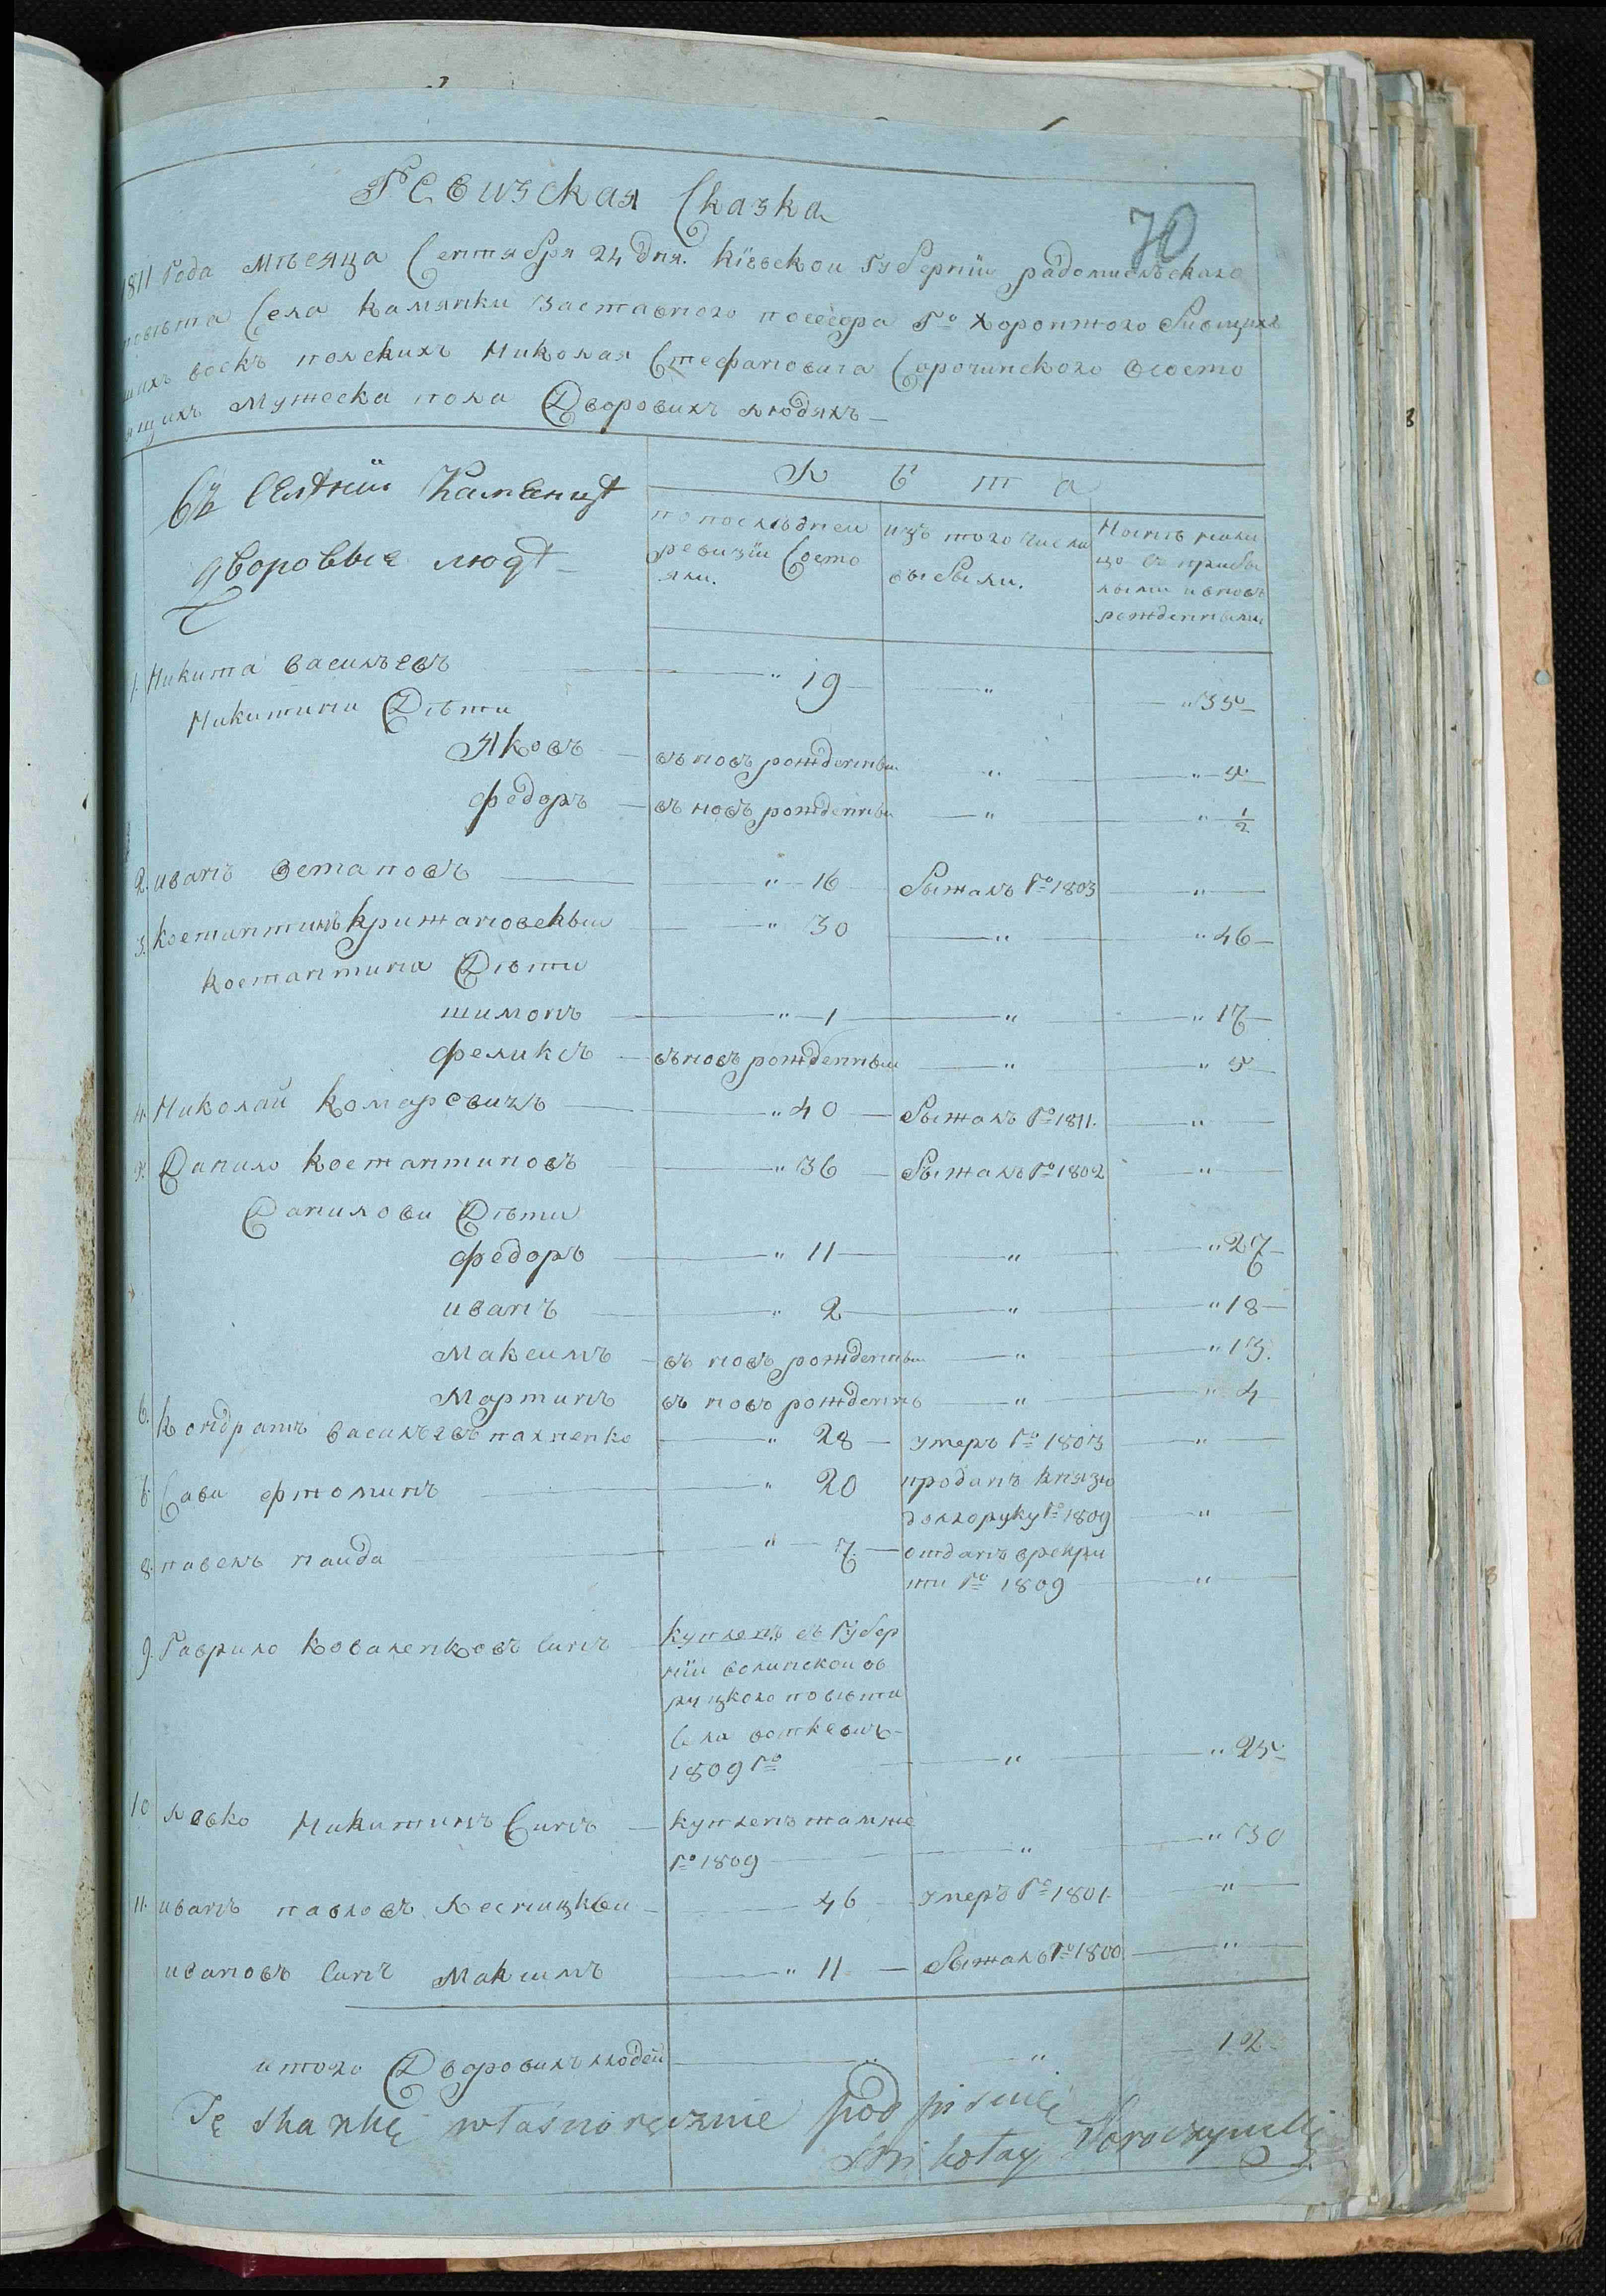 70
Ревизская Сказка
1811 Года Мѣсяца Сентября 24 дня. Кіевской Губерніи радомисльскаго
повѣта Села Камянки заставного посесора Го Хоронжого бивших
шихъ воскъ полскихъ Николая Стефановича Сорочинского Ососто
ящихъ Мужеска пола Дворовихъ людяхъ
Въ Селѣнии Каменцѣ
дворовые людѣ
Лѣта
попослѣдней ревизіи Состо яли.
изъ того числа выбыли.
Нынѣ налицо съ прибылыми и вновъ рожденными
1. Никита васильевъ " 19 " " 35
Никитини Дѣти
Яковъ въ новъ рожденный " " 5
федоръ въ новъ рожденный " " 1/2
2. иванъ остаповъ " 16 бѣжалъ Го 1803 "
3. костантинъ крижановскый " 30 " " 46
костантина Дѣти
шимонъ " 1 " " 17
феликсъ въновъ рожденный " " 5
4. Николай комаревичъ " 40 бѣжалъ Го 1811. "
5. Данило костантиновъ " 36 бѣжалъ Го 1802 "
Данилови Дѣти
федоръ " 11 " " 27
иванъ " 2 " " 18
Максимъ въ новъ рожденный " " 13.
Мартинъ въ новъ рожденнъ " " 4
6. кондратъ васильевъ пахненко " 28 умеръ Го 1803 "
Сава " 20 проданъ князю
долгоруку Го 1809 "
8. павелъ паида " 7. отданъ врекру
ти Го 1809 "
9. Гаврило коваленковъ Синъ купленъ въ Губер
ніи волинской ов
руцкого повѣта
Села
1809 Го " " 25
10 левко Никитинъ Синъ купленъ тамже
Го 1809 " " 30
11. иванъ павловъ Лесницкый 46 умеръ Го 1801. "
ивановъ Синъ Максимъ " 11 бѣжалъ Го 1800 "
итого Дворовихъ людей " " 12
Tę skazkę własnoręcznie podpisuię
Mikołay Soroczynski